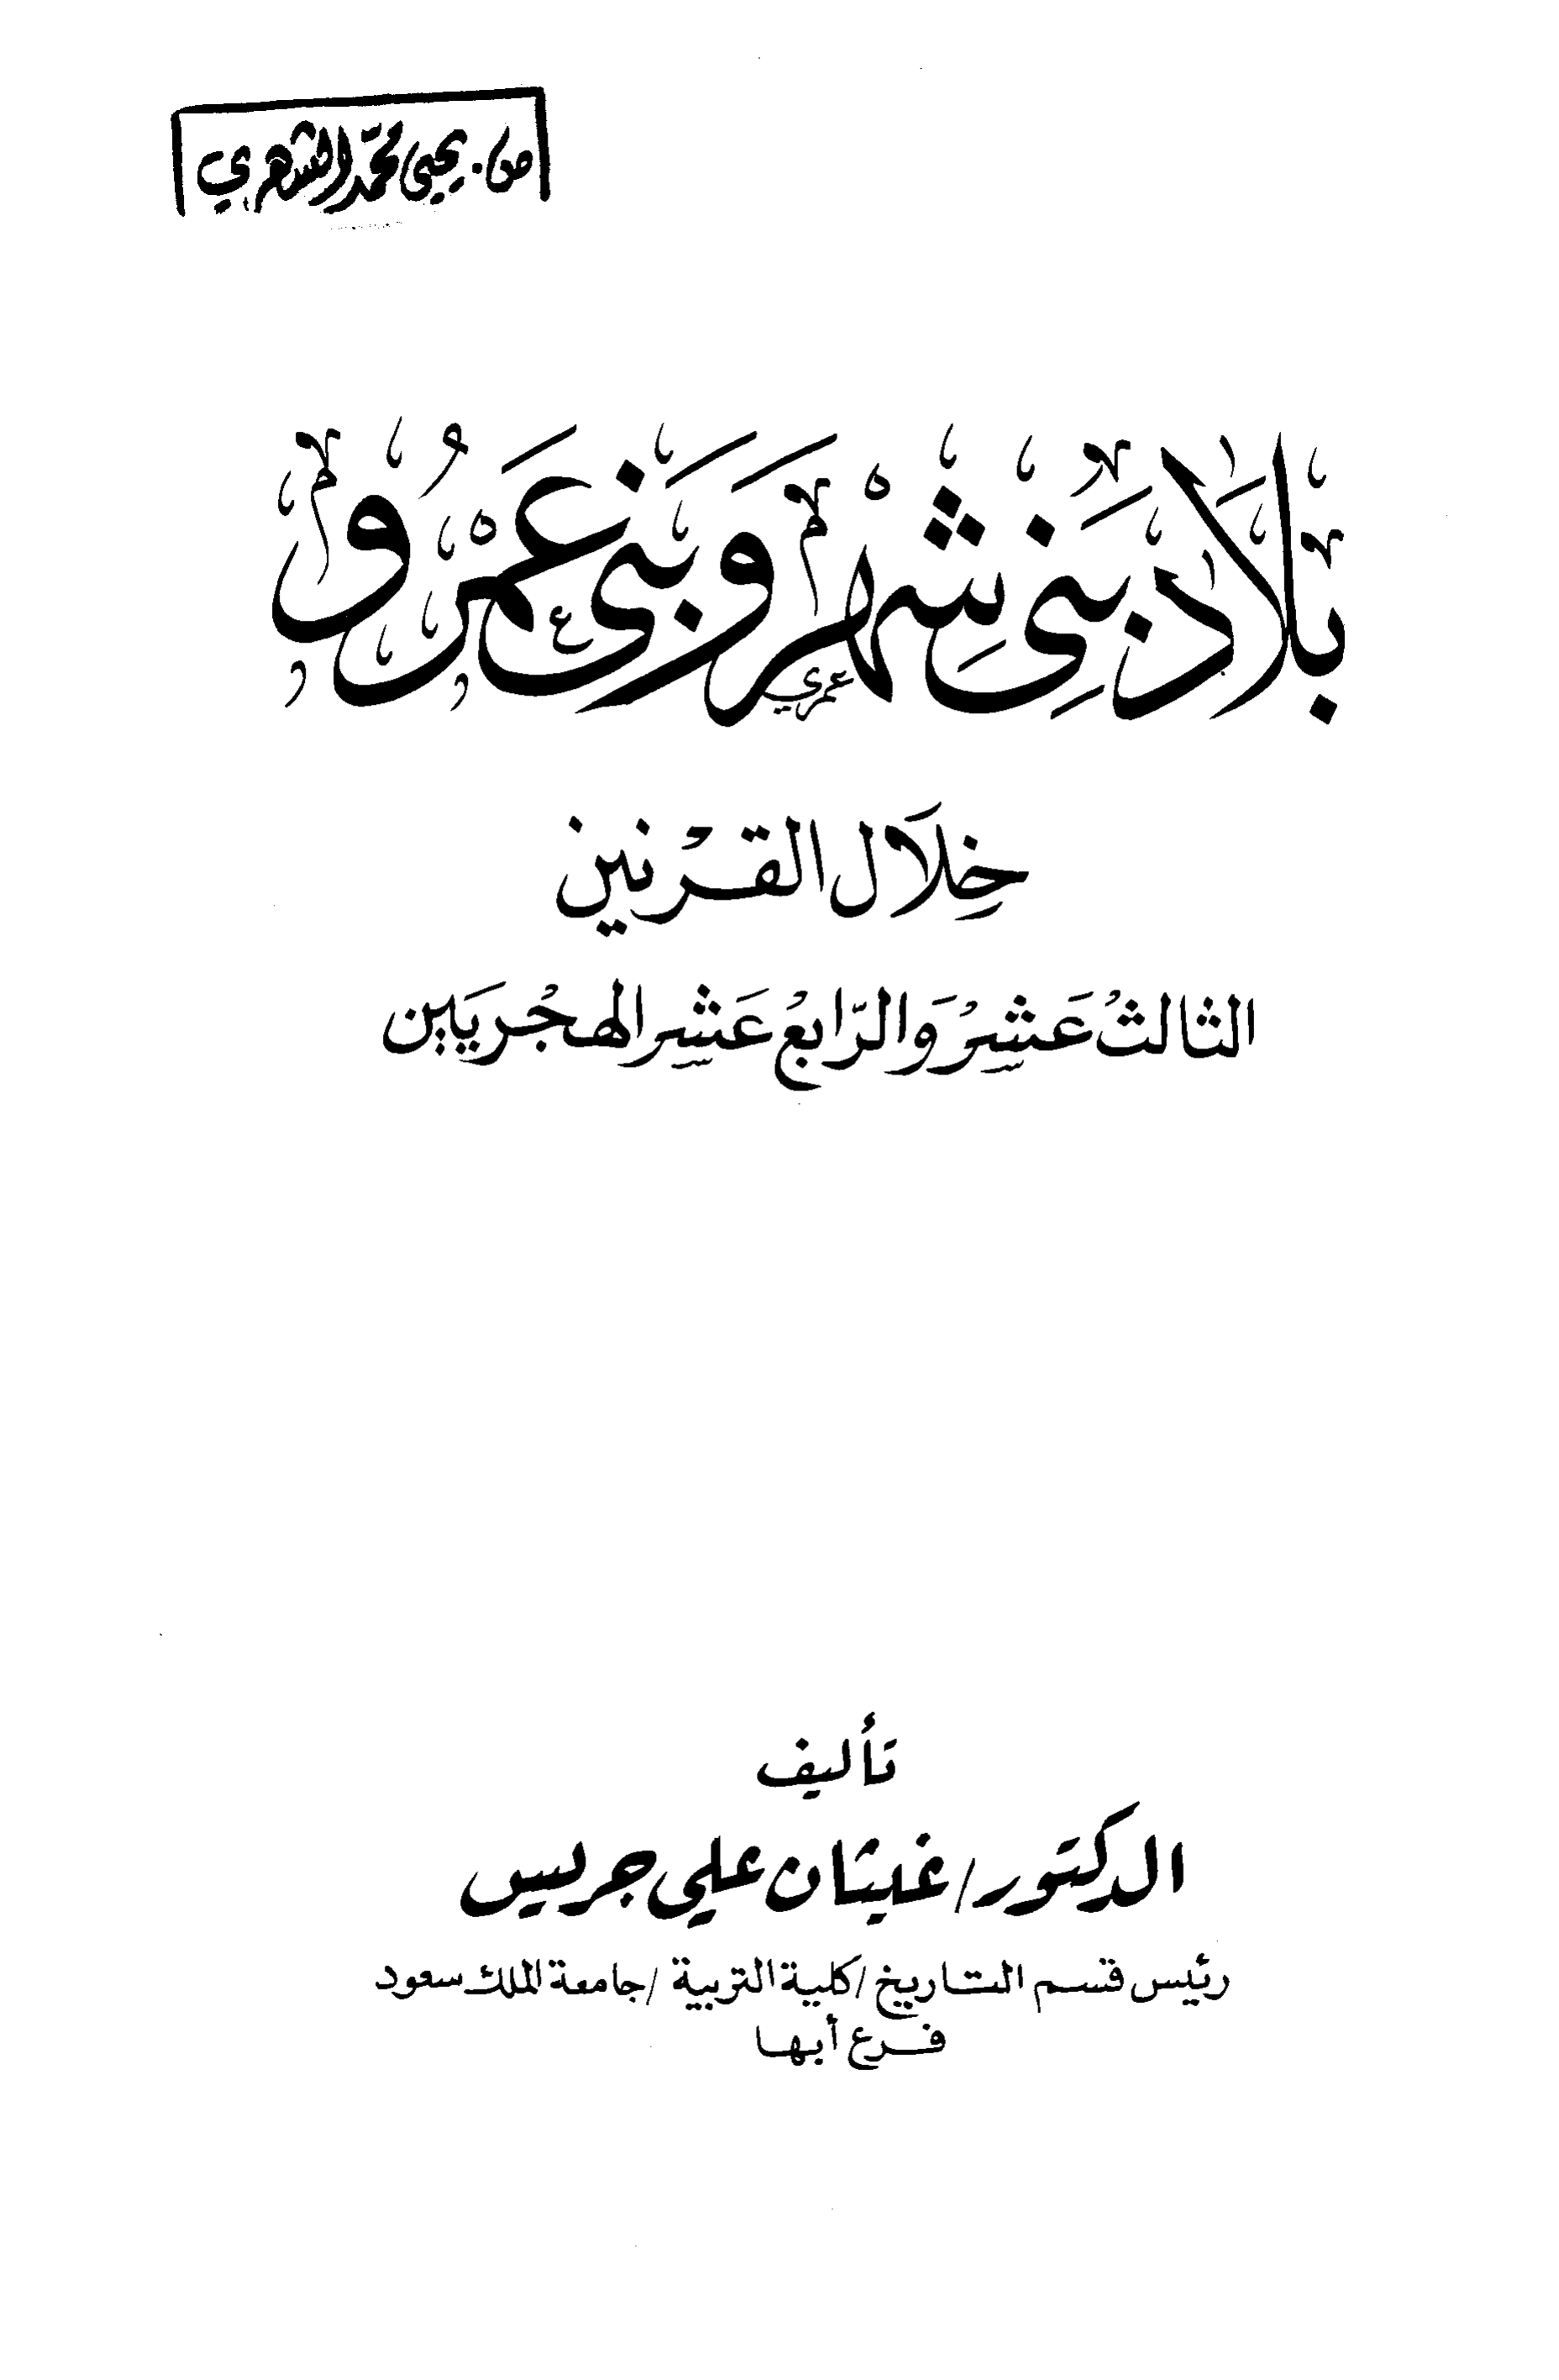 يحيى محمد الشهري
بلاد بني شهر وبني عمرو
عمري
خلال القرنين
الثالث عشر والرابع عشر الهجريين
تأليف
الدكتور / غيثان علي جريس
رئيس قسم التاريخ / كلية التربية / جامعة الملك سعود
فرع أبها